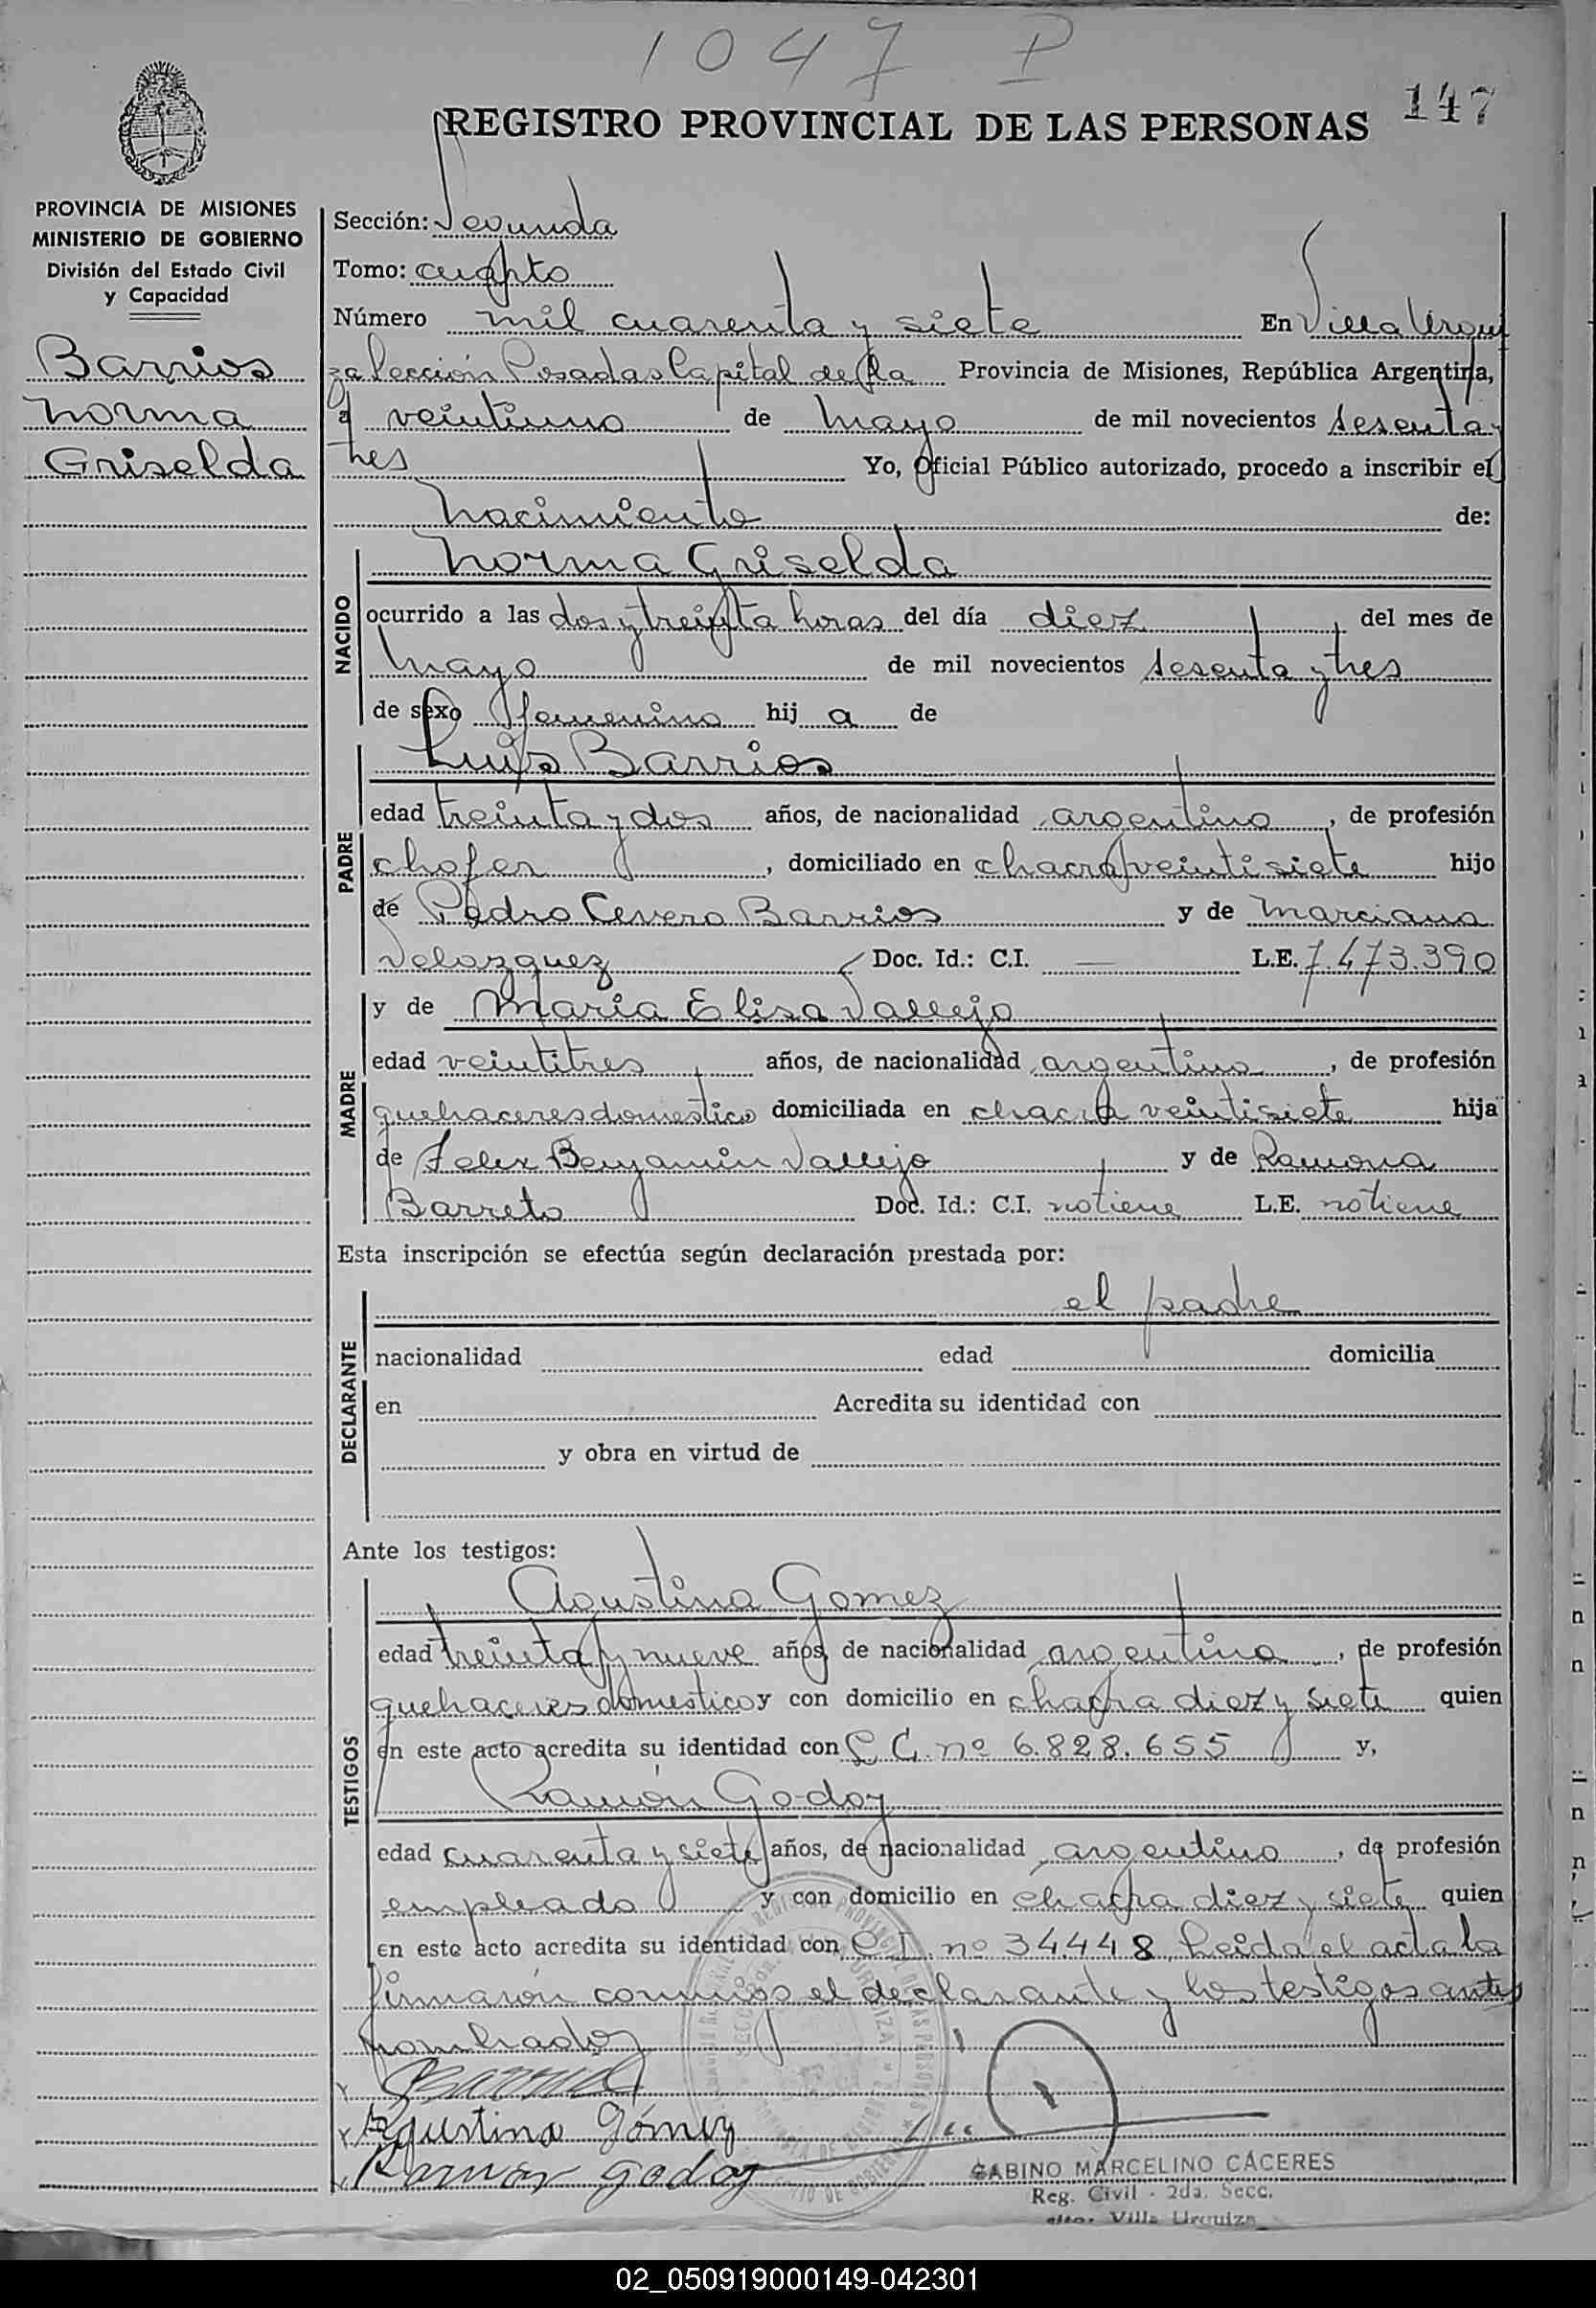 1047 P
147
REGISTRO PROVINCIAL DE LAS PERSONAS
PROVINCIA DE MISIONES
MINISTERIO DE GOBIERNO
División del Estado Civil
y Capacidad
Barrios
Norma
Griselda
Sección: Segunda
Tomo: cuarto
Número mil cuarenta y siete En Villa Urqui
za Sección Posadas Capital de la Provincia de Misiones, República Argentina,
a veintiuno de Mayo de mil novecientos sesenta y
tres Yo, Oficial Público autorizado, procedo a inscribir el
Nacimiento de:
NACIDO
Norma Griselda
ocurrido a las dos y treinta horas del día diez del mes de
Mayo de mil novecientos sesenta y tres
de sexo femenino hij a de
PADRE
Luis Barrios
edad treinta y dos años, de nacionalidad argentino, de profesión
chofer, domiciliado en chacra veintisiete hijo
de Pedro Cevero Barrios y de Marciana
Velazquez Doc. Id.: C.I. — L.E. 7.473.390
MADRE
y de Maria Elisa Vallejo
edad veintitres años, de nacionalidad argentina, de profesión
quehaceres domestico domiciliada en chacra veintisiete hija
de Felix Benjamin Vallejo y de Ramona
Barreto Doc. Id.: C.I. no tiene L.E. no tiene
Esta inscripción se efectúa según declaración prestada por:
DECLARANTE
el padre
nacionalidad edad domicilia
en Acredita su identidad con
y obra en virtud de
Ante los testigos:
TESTIGOS
Agustina Gomez
edad treinta y nueve años, de nacionalidad argentina, de profesión
quehaceres domestico y con domicilio en chacra diez y siete quien
en este acto acredita su identidad con L C. nº 6.828.655 y,
Ramón Godoy
edad cuarenta y siete años, de nacionalidad argentino, de profesión
empleado y con domicilio en chacra diez y siete quien
en este acto acredita su identidad con C I. nº 34448 Leida el acta la
firmaron conmigo el declarante y los testigos antes
nombrados
Barrios
Agustina Gómez
Ramon Godoy
SABINO MARCELINO CACERES
Reg. Civil - 2da. Secc.
Villa Urquiza
02_050919000149-042301